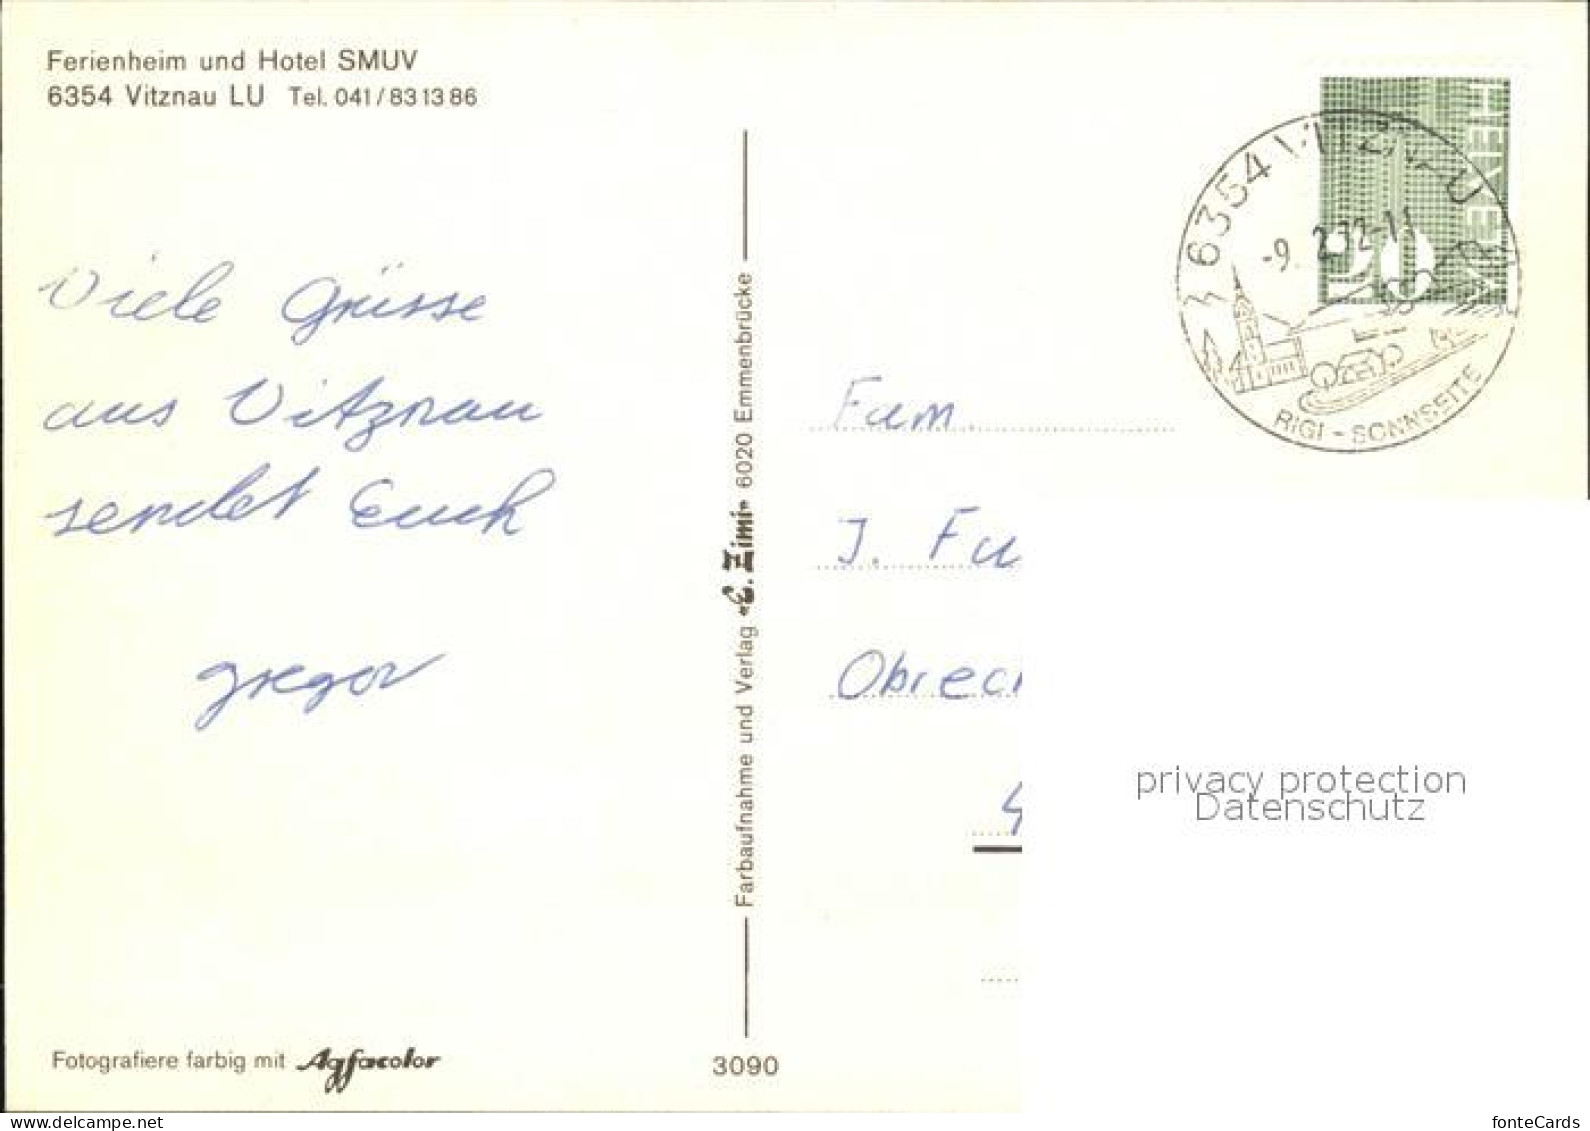 Ferienheim und Hotel SMUV
6354 Vitznau LU Tel. 041/831386
Viele Grüsse
aus Vitznau
sendet Euch
gregor
Fotografiere farbig mit Agfacolor
Farbaufnahme und Verlag «E. Zimi» 6020 Emmenbrücke
3090
HELVETIA
6354 VITZNAU
-9. 2.72-11
RIGI - SONNSEITE
Fam.
J. Fu
Obrec
privacy protection
Datenschutz
www.delcampe.net
fonteCards